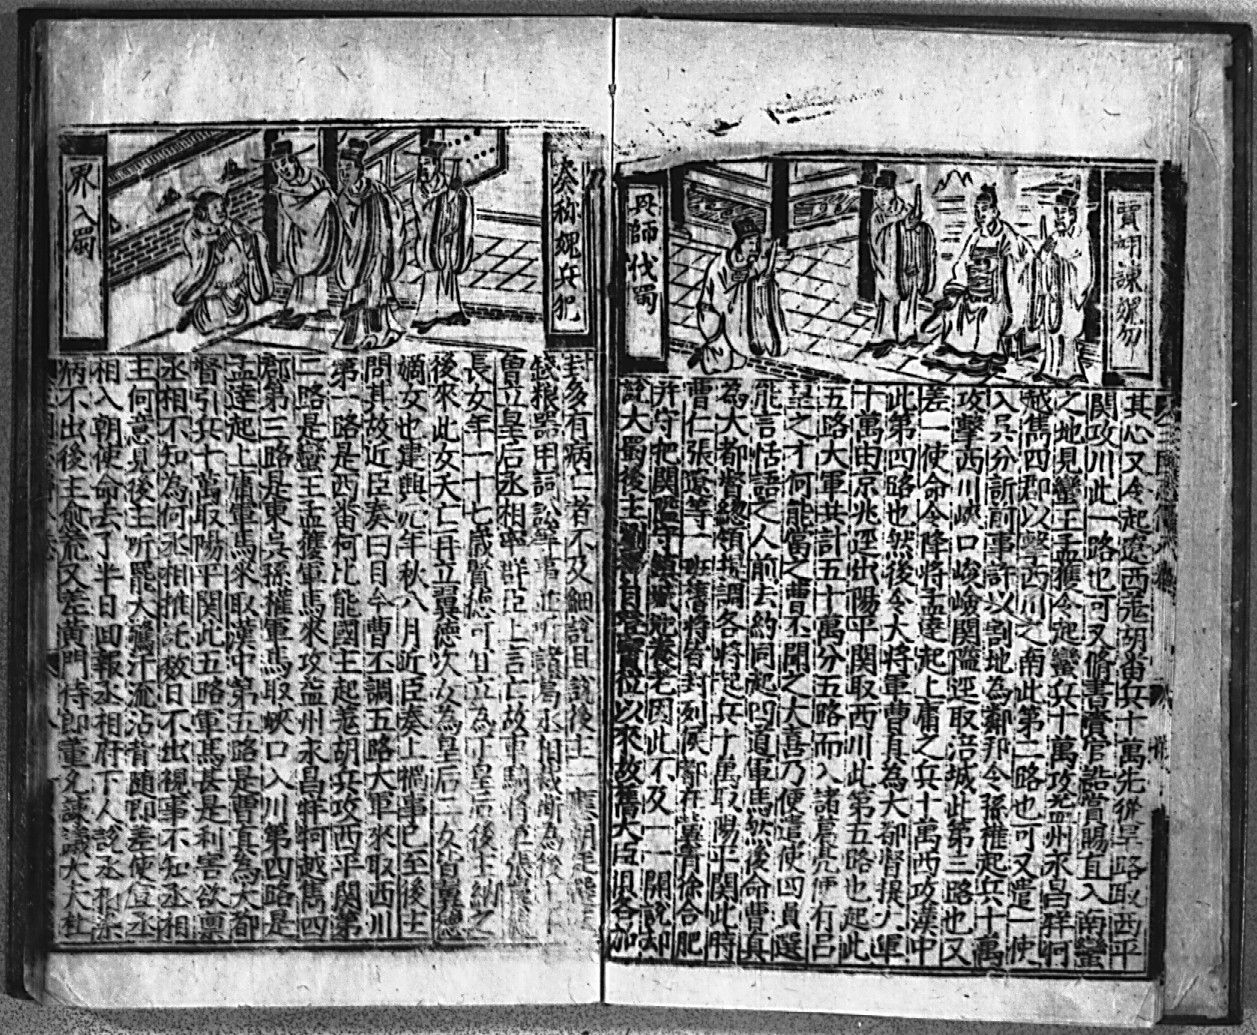 賈詡諫魏勿
興師伐蜀
其心又令起遼西羌胡番兵十萬先從旱路取西平
関攻川此一路也可又脩書賫官誥賞賜直入南蠻
之地見蠻王孟獲令起蠻兵十萬攻益州永昌牂牁
越雋四郡以擊西川之南此第二路也可又遣一使
入吳分訴前事許以割地為鄰邦令孫權起兵十萬
攻擊西川峽口峻嶮関隘逕取涪城此第三路也又
差一使命令降將孟達起上庸之兵十萬西攻漢中
此第四路也然後令大將軍曹真為大都督提大軍
十萬由京兆逕出陽平関取西川此第五路也起此
五路大軍共計五十萬分五路而入諸葛亮便有呂
望之才何能當之曹丕聞之大喜乃便遣使四員選
能言恬語之人前去約同起四道軍馬然後命曹真
為大都督總領提調各將起兵十萬取陽平関此時
曹仁張遼等一班舊將皆封列侯都在冀青徐合肥
并守把関隘守鎮城池養老因此不及一一開說却
說大蜀後主劉禪自登寶位以來故舊大臣俱各加
奏称魏兵犯
界入蜀
封多有病亡者不及細說且說後主一應朝廷
錢粮器用詞訟等事並听諸葛丞相裁斷為後主不
曾立皇后丞相率群臣上言亡故車騎將軍張
長女年一十七歲賢德可宜立為正皇后後主納之
後來此女夭亡再立翼德次女為皇后二女皆翼德
嫡女也建興元年秋八月近臣奏上禍事已至後主
問其故近臣奏曰目今曹丕調五路大軍來取西川
第一路是西番柯比能國王起羌胡兵攻西平関第
二路是蠻王孟獲軍馬來攻益州永昌牂牁越雋四
郡第三路是東吳孫權軍馬取峽口入川第四路是
孟達起上庸軍馬來取漢中第五路是曹真為大都
督引兵十萬取陽平関此五路軍馬甚是利害欲禀
丞相不知為何丞相推託数日不出視事不知丞相
主何意見後主听罷大驚汗流沾背随即差使宣丞
相入朝使命去了半日回報丞相府下人說丞相染
病不出後主愈荒又差黃門侍郎董允諫議大夫杜